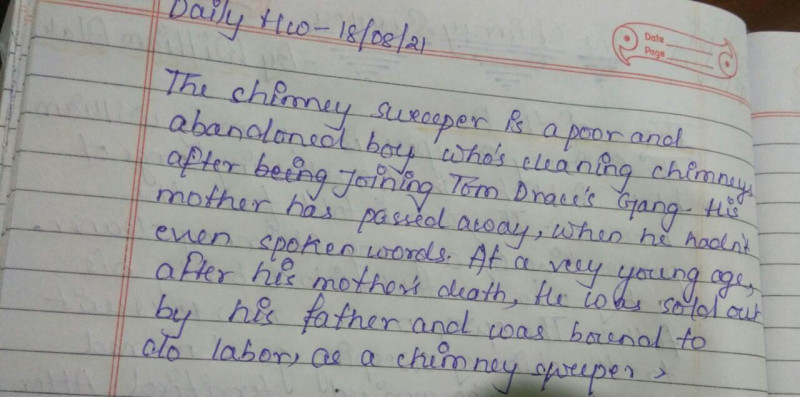 Daily Hw - 18/08/21
Date
Page
The chimney sweeper is a poor and
abandoned boy who's cleaning chimneys
after being Joining Tom Drace's Gang. His
mother has passed away, when he hadn't
even spoken words. At a very young age,
after his mother's death, He was sold out
by his father and was bound to
do labor, as a chimney sweeper,